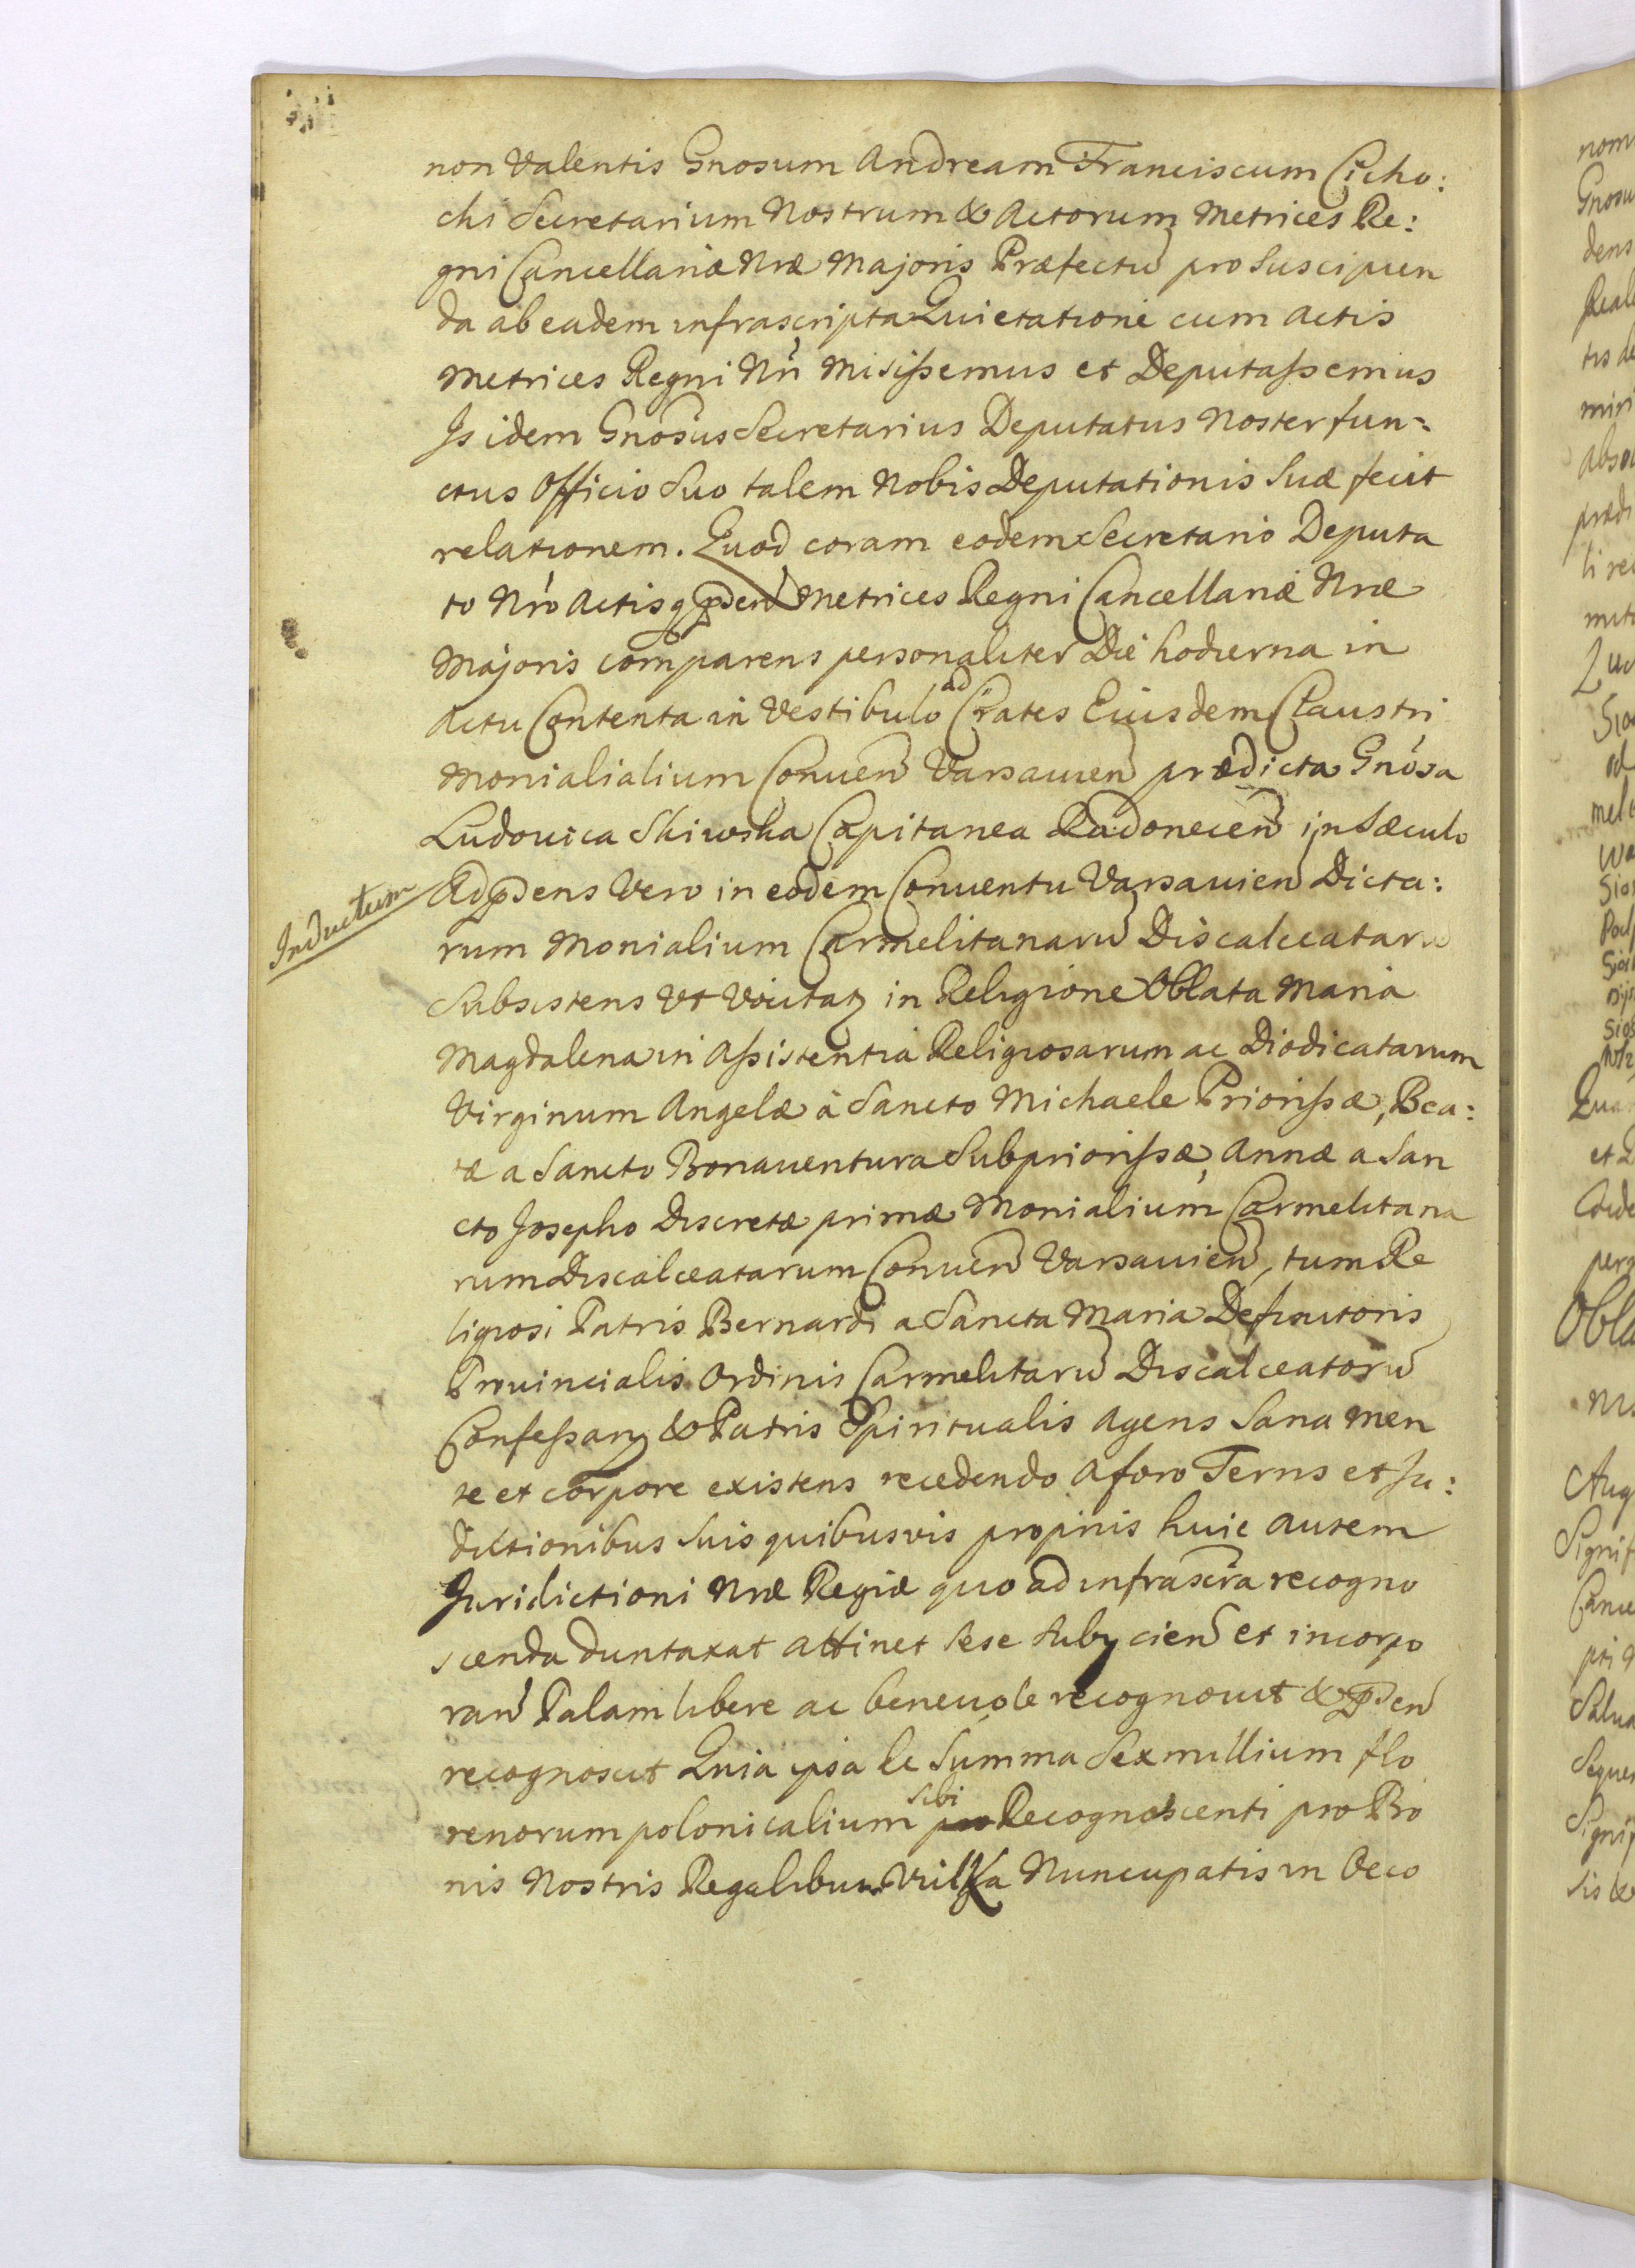 non Valentis Gnosum Andream Franciscum Cicho:
cki Secretarium Nostrum & Actorum Metrices Re:
gni Cancellariæ Nræ Majoris Præfectũ pro suscipien
da ab eadem infrascripta Quietatione cum Actis
Metrices Regni Nri Misissemus et Deputassemus
Is idem Gnosus Secretarius Deputatus Noster fun=
ctus Officio Suo talem Nobis Deputationis Suæ fecit
relationem. Quod coram eodem Secretario Deputa
to Nro Actisq Metrices Regni Cancellariæ Nræ
Majoris comparens personaliter Die hodierna in
Actu Contenta in Vestibulo ad Crates Eiusdem Claustri
Monialialium Conuen Varsauien prædicta Gnosa
Ludouica Skiwska Capitanea Radonecen in Sæculo
Inductum
Ad pdens Vero in eodem Conuentu Varsauien Dicta:
rum Monialium Carmelitanarũ Discalceatarũ
Subsistens Vt in Religione Oblata Maria
Magdalena in Assistentia Religiosarum ac Diodicatarum
Virginum Angelæ à Sancto Michaele Priorissæ, Bea:
tæ a Sancto Bonauentura Subpriorissæ, Annæ a San
cto Josepho Discretæ primæ Monialium Carmelitana
rum Discalceatarum Conuen Varsauien, tum Re
ligiosi Patris Bernardi a Sancta Maria Definitoris
Prouincialis Ordinis Carmelitarũ Discalceatorũ
Confessarÿ & Patris Spiritualis Agens Sana Men
te et corpore existens recedendo a foro Terris et Ju:
dictionibus Suis quibusvis proprijs huic autem
Juridictioni Nræ Regiæ quo ad infrascra recogno
scenda duntaxat attinet sese subÿcien et incorpo
ran Palam libere ac beneuole recognouit & pden
recognoscit Quia ipsa de Summa Sex millium flo
renorum polonicalium sibi pro Recognoscenti pro Bo
nis Nostris Regalibus Vulka Nuncupatis in Oeco